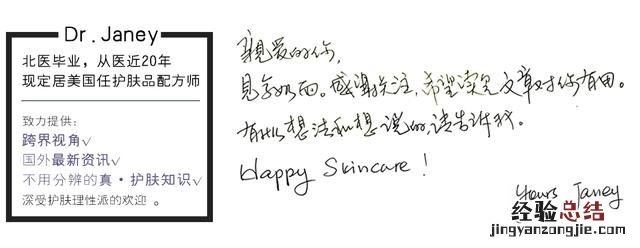 Dr. Janey
北医毕业，从医近20年
现定居美国任护肤品配方师
致力提供：
跨界视角√
国外最新资讯√
不用分辨的真·护肤知识√
深受护肤理性派的欢迎 。
親爱的你，
见字如面。感谢关注，希望读完文章对你有用。
有什么想法和想说的，请告诉我。
Happy Skincare !
yours Janey
经验总结
jingyanzongjie.com